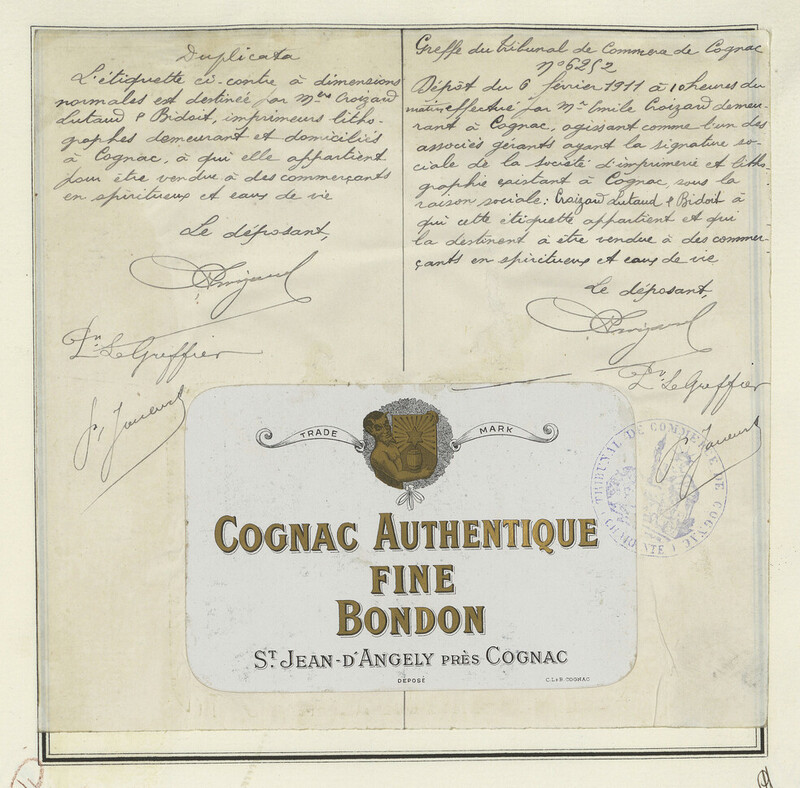 Duplicata
L'étiquette ci-contre à dimensions
normales est destinée par Mers Croizard
Lutaud & Bidoit, imprimeurs litho-
graphes demeurant et domiciliés
à Cognac, à qui elle appartient
pour être vendue à des commerçants
en spiritueux et eaux de vie
Le déposant,
Pr Le Greffier
Greffe du tribunal de Commerce de Cognac
No 6252
Dépôt du 6 février 1911 à 10 heures du
matin effectué par Mr Emile Croizard demeu-
rant à Cognac, agissant comme l'un des
associés gérants ayant la signature so-
ciale de la société d'imprimerie et litho-
graphie existant à Cognac, sous la
raison sociale: Croizard Lutaud & Bidoit à
qui cette étiquette appartient et qui
la destinent à être vendue à des commer-
çants en spiritueux et eaux de vie
Le déposant,
Pr Le Greffier
TRADE MARK
COGNAC AUTHENTIQUE
FINE
BONDON
ST JEAN-D'ANGELY PRÈS COGNAC
DÉPOSÉ
C.L&B. COGNAC
TRIBUNAL DE COMMERCE DE COGNAC
(CHARENTE)